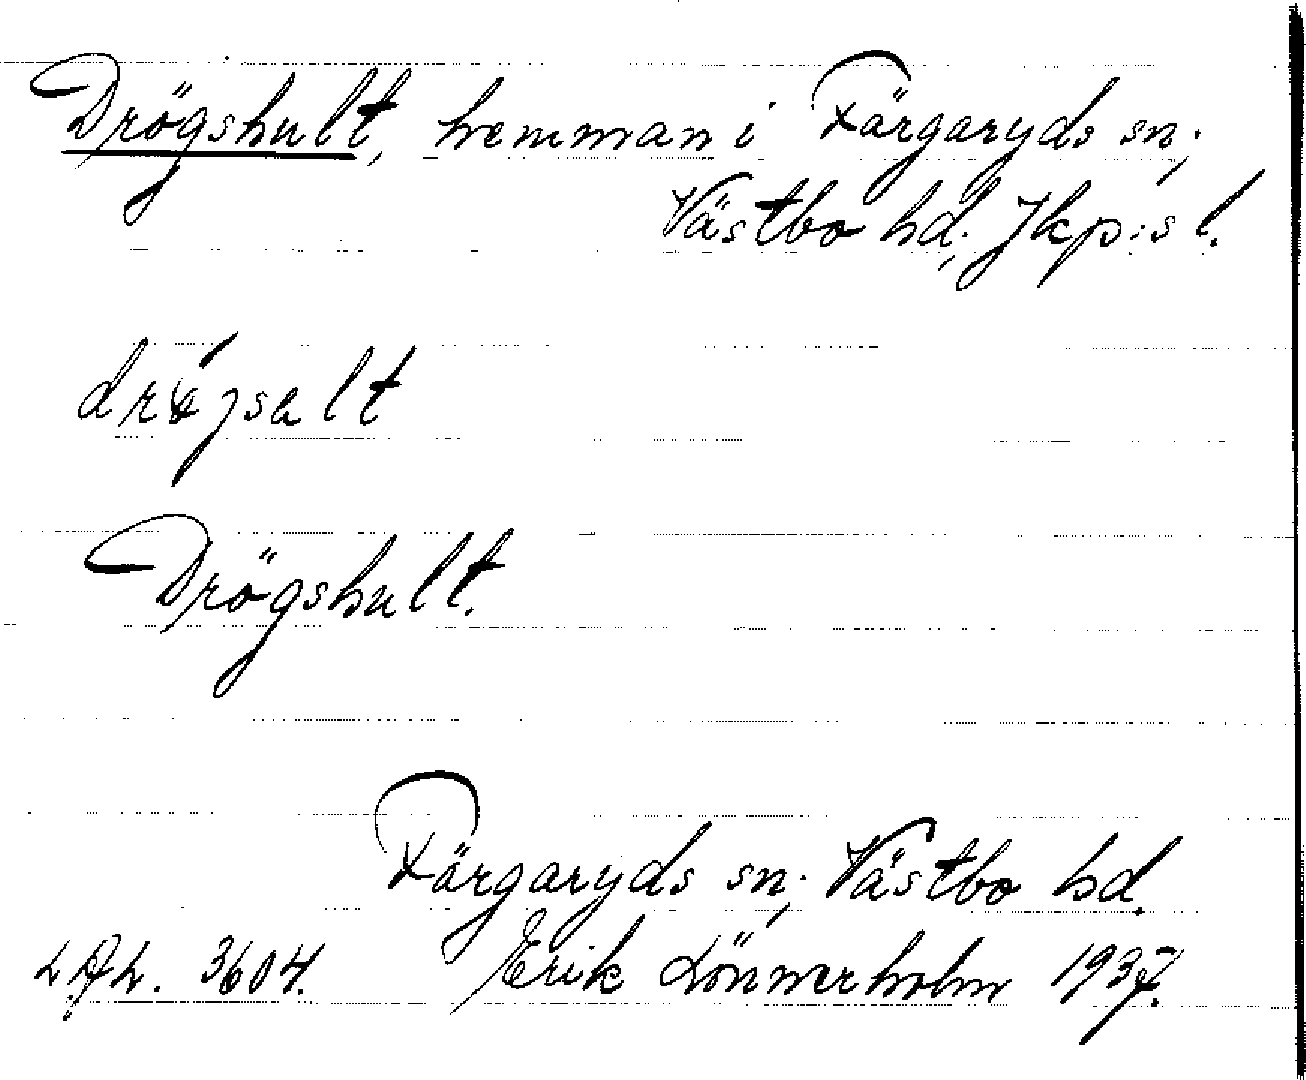 Drögshult, hemman i Färgaryds sn;
Västbo hd; Jkp:s l.
drö́jsalt
Drögshult.
Färgaryds sn; Västbo hd.
LAL. 3604. Erik Lönnerholm 1937.